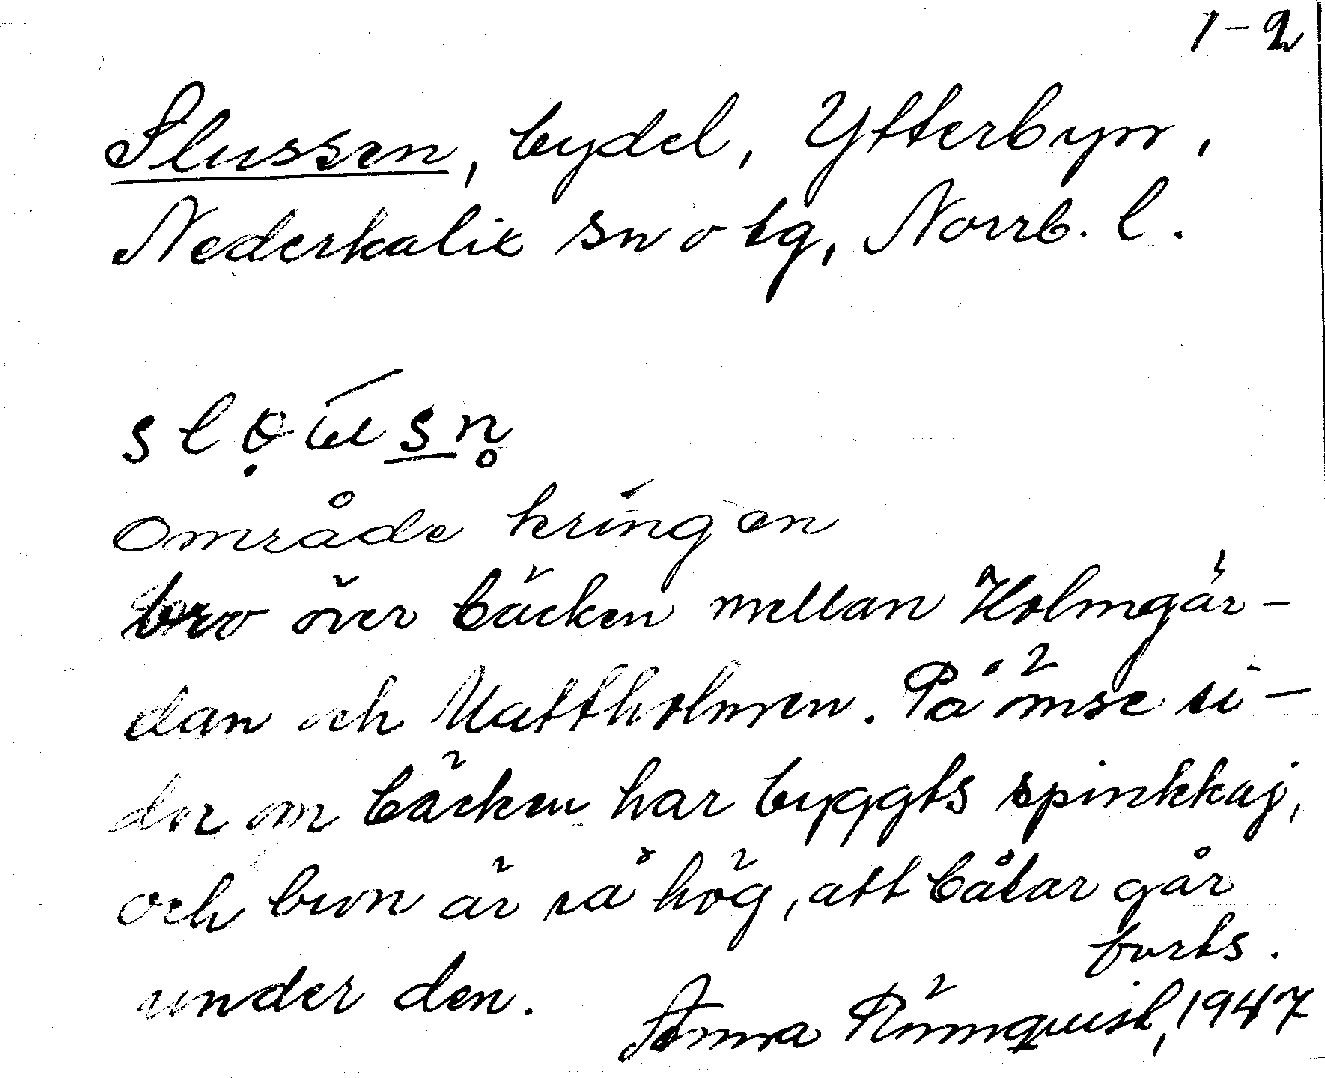 1-2
Slussen, bydel, Ytterbyn,
Nederkalix sn o tg, Norrb. l.
område kring en
bro över bäcken mellan Holmgär-
dan och Nattholmen. På ömse si-
dor om bäcken har byggts spinkkaj,
och bron är så hög, att båtar går
under den.
forts.
Anna Rönnquist, 1947